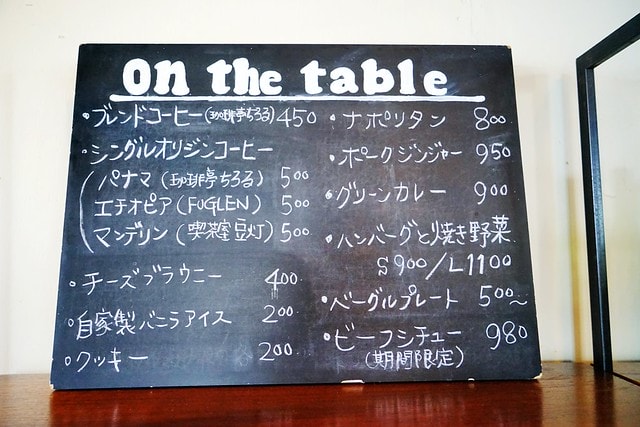 On the table
・ブレンドコーヒー(珈琲亭ちろる) 450
・シングルオリジンコーヒー
パナマ(珈琲亭ちろる) 500
エチオピア(FUGLEN) 500
マンデリン(喫茶室豆灯) 500
・チーズブラウニー 400
・自家製バニラアイス 200
・クッキー 200
・ナポリタン 800
・ポークジンジャー 950
・グリーンカレー 900
・ハンバーグと焼き野菜
S900/L1100
・ベーグルプレート 500~
・ビーフシチュー 980
(期間限定)